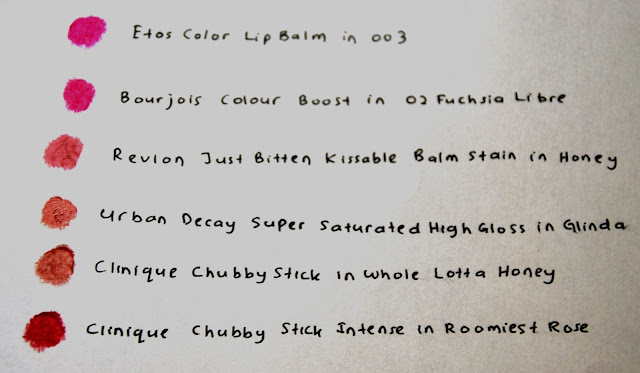 Etos Color Lip Balm in 003
Bourjois Colour Boost in 02 Fuchsia Libre
Revlon Just Bitten Kissable Balm Stain in Honey
Urban Decay Super Saturated High Gloss in Glinda
Clinique Chubby Stick in Whole Lotta Honey
Clinique Chubby Stick Intense in Roomiest Rose